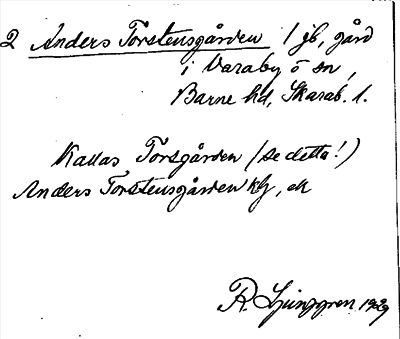 2 Anders Torstensgården 1 jb, gård
i Varaby ö sn,
Barne hd, Skarab. l.
Kallas Torsgården (se detta!)
Anders Torstensgården kbg, ek
R. Ljunggren 1929